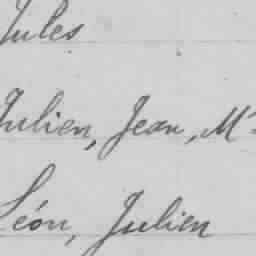 Jules
Julien, Jean, M
Léon, Julien